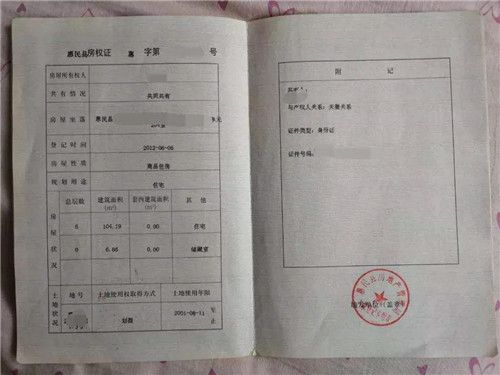 惠民县房权证 惠 字第 号
房屋所有权人
共有情况 共同共有
房屋坐落 惠民县 单元
登记时间 2012-06-06
房屋性质 商品住房
规划用途 住宅
房屋状况
总层数 建筑面积(m²) 套内建筑面积(m²) 其他
6 104.19 0.00 住宅
0 6.86 0.00 储藏室
土地状况
地号 土地使用权取得方式 土地使用年限
划拨 2001-08-11 至 止
附 记
与产权人关系：夫妻关系
证件类型：身份证
证件号码：
惠民县房地产管
填发单位（盖章）